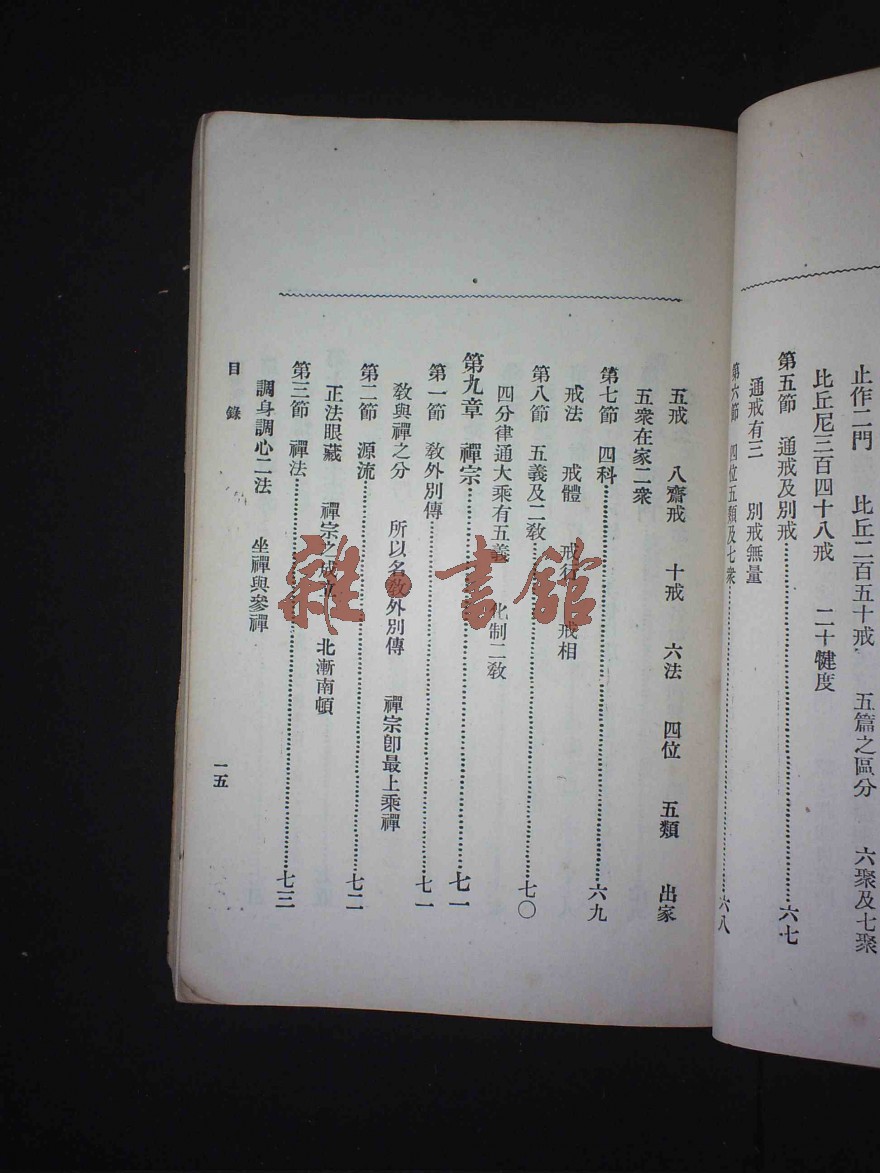 止作二門　比丘二百五十戒　五篇之區分　六聚及七聚
比丘尼三百四十八戒　二十犍度
第五節　通戒及別戒……………………六七
通戒有三　別戒無量
第六節　四位五類及七衆……………………六八
五戒　八齋戒　十戒　六法　四位　五類　出家
五衆在家二衆
第七節　四科……………………六九
戒法　戒體　戒行　戒相
第八節　五義及二敎……………………七〇
四分律通大乘有五義　化制二敎
第九章　禪宗……………………七一
第一節　敎外別傳……………………七一
敎與禪之分　所以名敎外別傳　禪宗卽最上乘禪
第二節　源流……………………七二
正法眼藏　禪宗之成立　北漸南頓
第三節　禪法……………………七三
調身調心二法　坐禪與參禪
目錄
一五
雜·書館